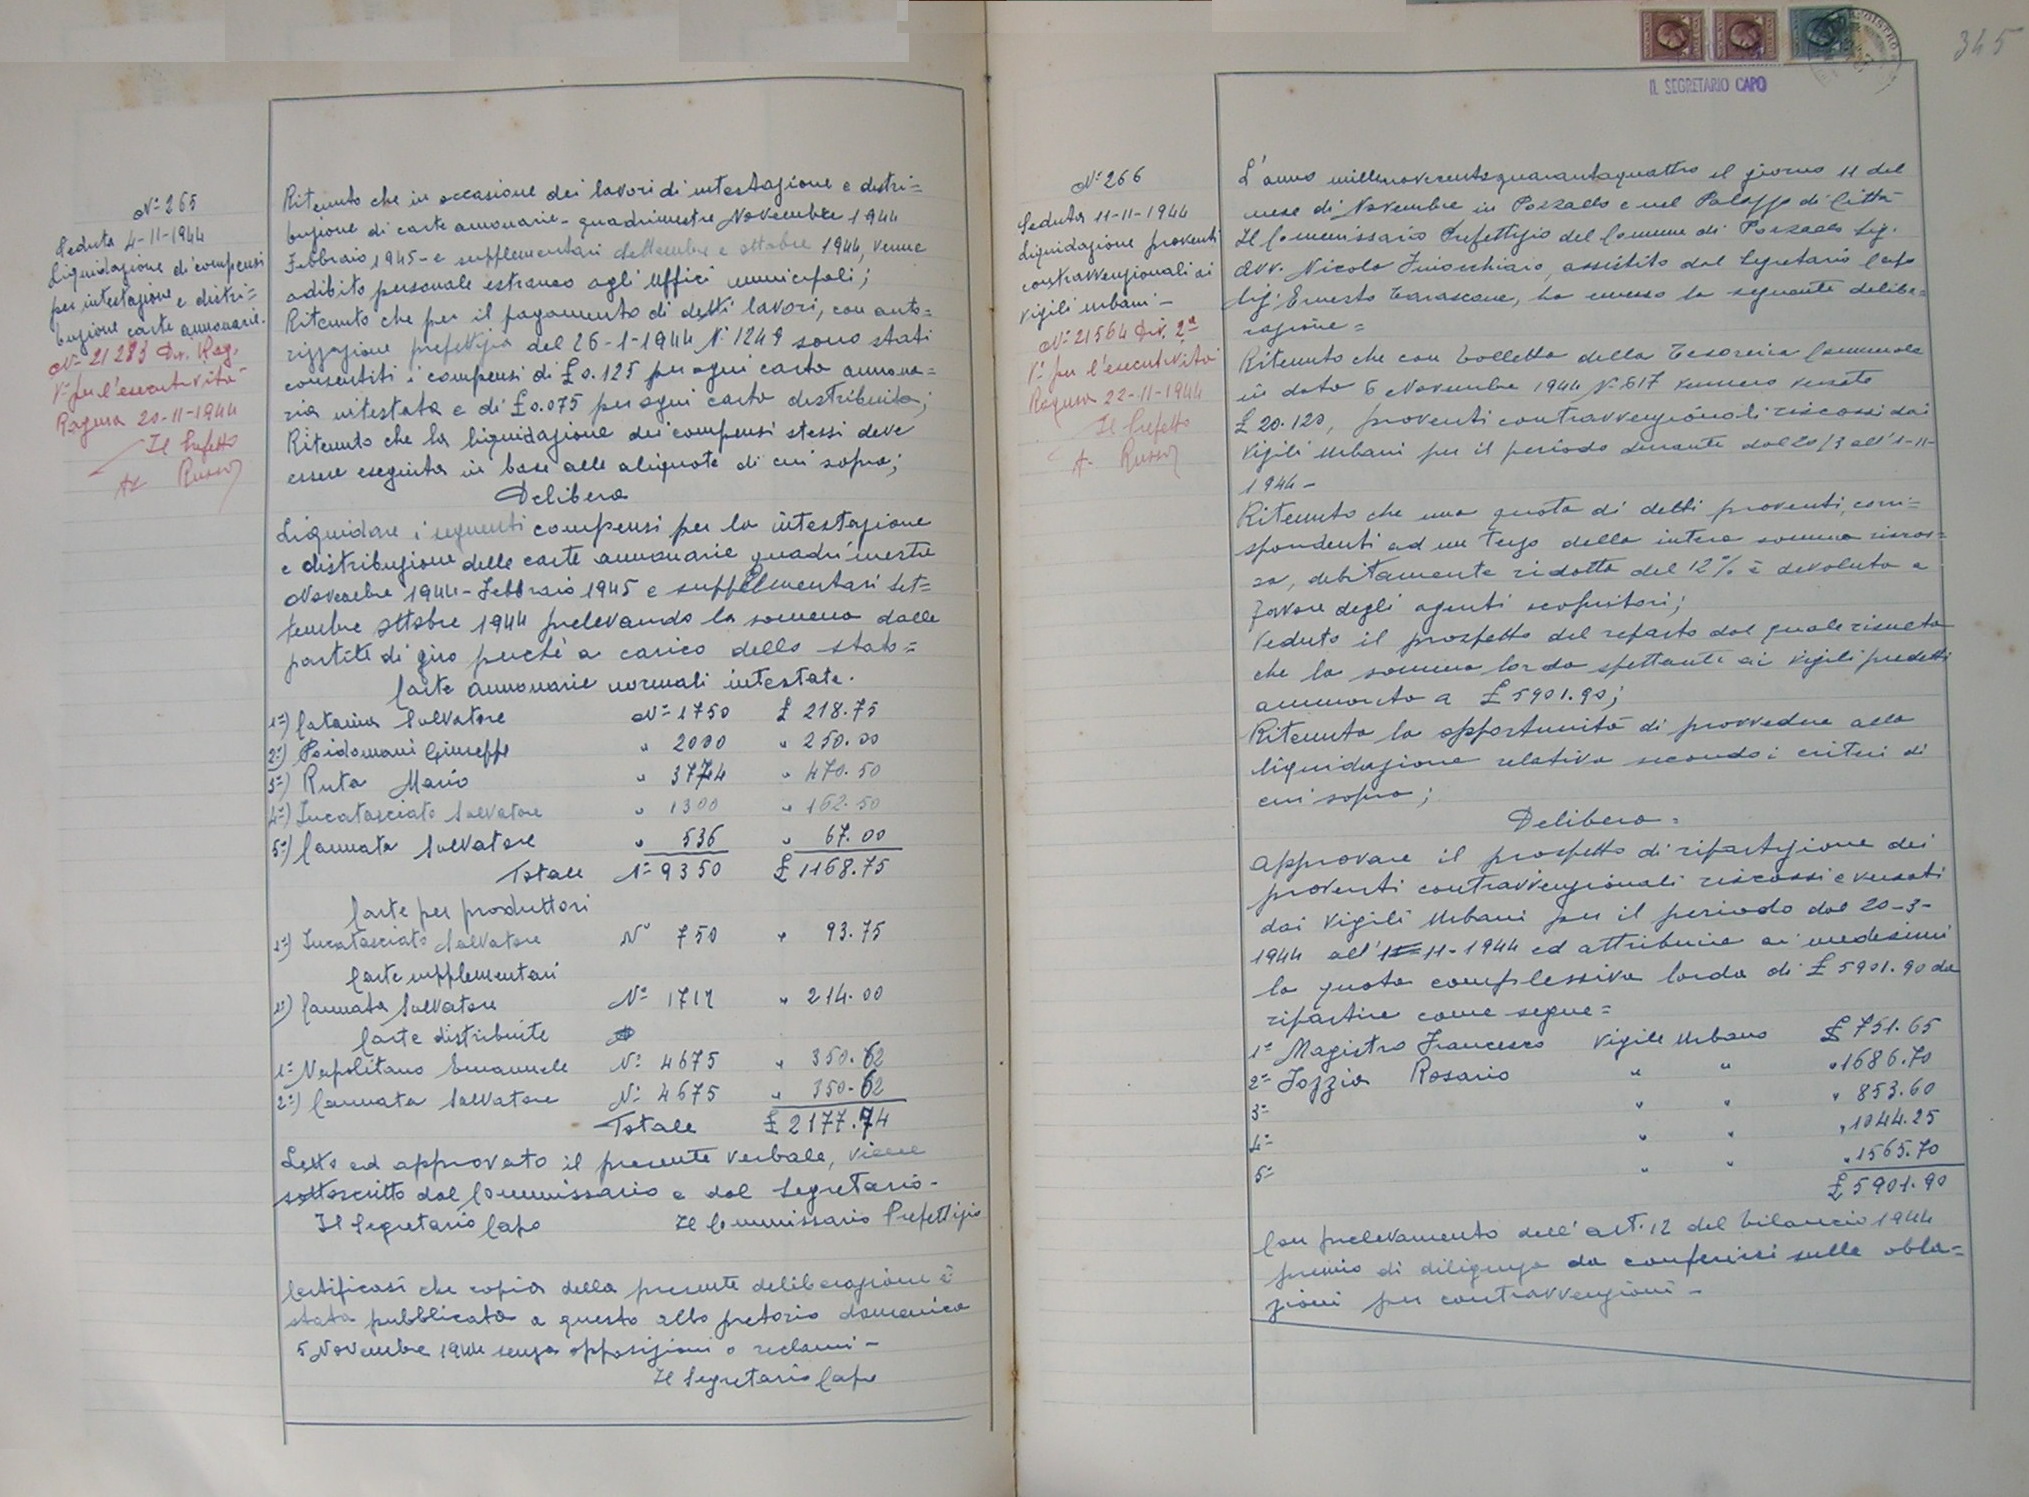 N° 265
Seduta 4-11-1944
Liquidazione di compensi
per intestazione e distri=
buzione carte annonarie.
N° 21283 Div. Rag.
V° per l'esecutività
Ragusa 20-11-1944
Il Prefetto
Russo
Ritenuto che in occasione dei lavori di intestazione e distri=
buzione di carte annonarie - quadrimestre Novembre 1944
Febbraio 1945 - e supplementari settembre e ottobre 1944, venne
adibito personale estraneo agli Uffici municipali;
Ritenuto che per il pagamento di detti lavori, con auto=
rizzazione prefettizia del 26-1-1944 N° 1249 sono stati
consentiti i compensi di £ 0.125 per ogni carta annona=
ria intestata e di £ 0.075 per ogni carta distribuita;
Ritenuto che la liquidazione dei compensi stessi deve
essere eseguita in base alle aliquote di cui sopra;
Delibera
Liquidare i seguenti compensi per la intestazione
e distribuzione delle carte annonarie quadrimestre
Novembre 1944 - Febbraio 1945 e supplementari set=
tembre ottobre 1944 prelevando la somma dalle
partite di giro perchè a carico dello stato=
Carte annonarie normali intestate.
1°) Catania Salvatore N° 1750 £ 218.75
2°) Poidomani Giuseppe " 2000 " 250.00
3°) Ruta Mario " 3774 " 470.50
4°) Sucatasciato Salvatore " 1300 " 162.50
5°) Cannata Salvatore " 536 " 67.00
Totale N° 9350 £ 1168.75
Carte per produttori
1°) Sucatasciato Salvatore N° 750 " 93.75
Carte supplementari
1°) Cannata Salvatore N° 1712 " 214.00
Carte distribuite
1° Napolitano Emanuele N° 4675 " 350.62
2°) Cannata Salvatore N° 4675 " 350.62
Totale £ 2177.74
Letto ed approvato il presente verbale, viene
sottoscritto dal Commissario e dal Segretario -
Il Segretario Capo Il Commissario Prefettizio
Certificasi che copia della presente deliberazione è
stata pubblicata a questo albo pretorio domenica
5 Novembre 1944 senza opposizioni o reclami -
Il Segretario Capo
345
IL SEGRETARIO CAPO
N° 266
Seduta 11-11-1944
Liquidazione proventi
contravvenzionali ai
vigili urbani -
N° 21564 Div. 2ª
V° per l'esecutività
Ragusa 22-11-1944
Il Prefetto
Russo
L'anno millenovecentoquarantaquattro il giorno 11 del
mese di Novembre in Pozzallo e nel Palazzo di Città
Il Commissario Prefettizio del Comune di Pozzallo Sig.
Avv. Nicola assistito dal Segretario Capo
Sig. Ernesto Tarascone, ha emesso la seguente delibe=
razione=
Ritenuto che con bolletta della Tesoreria Comunale
in data 6 Novembre 1944 N° 617 vennero versate
£ 20.120, proventi contravvenzionali riscossi dai
Vigili Urbani per il periodo durante dal 20/3 all'1-11-
1944 -
Ritenuto che una quota di detti proventi, corri=
spondenti ad un terzo della intera somma riscos=
sa, debitamente ridotta del 12% è devoluta a
favore degli agenti scopritori;
Veduto il prospetto del reparto dal quale risulta
che la somma lorda spettante ai vigili predetti
ammonta a £ 5901.90;
Ritenuta la opportunità di provvedere alla
liquidazione relativa secondo i criteri di
cui sopra;
Delibera=
Approvare il prospetto di ripartizione dei
proventi contravvenzionali riscossi e versati
dai Vigili Urbani per il periodo dal 20-3-
1944 all'1-11-1944 ed attribuire ai medesimi
la quota complessiva lorda di £ 5901.90 da
ripartire come segue=
1° Magistro Francesco Vigile Urbano £ 751.65
2° Iozzia Rosario " " " 1686.70
3° " " " 853.60
4° " " " 1044.25
5° " " " 1565.70
£ 5901.90
Con prelevamento dell'art. 12 del bilancio 1944
premio di diligenza da conferirsi sulle obla=
zioni per contravvenzioni -